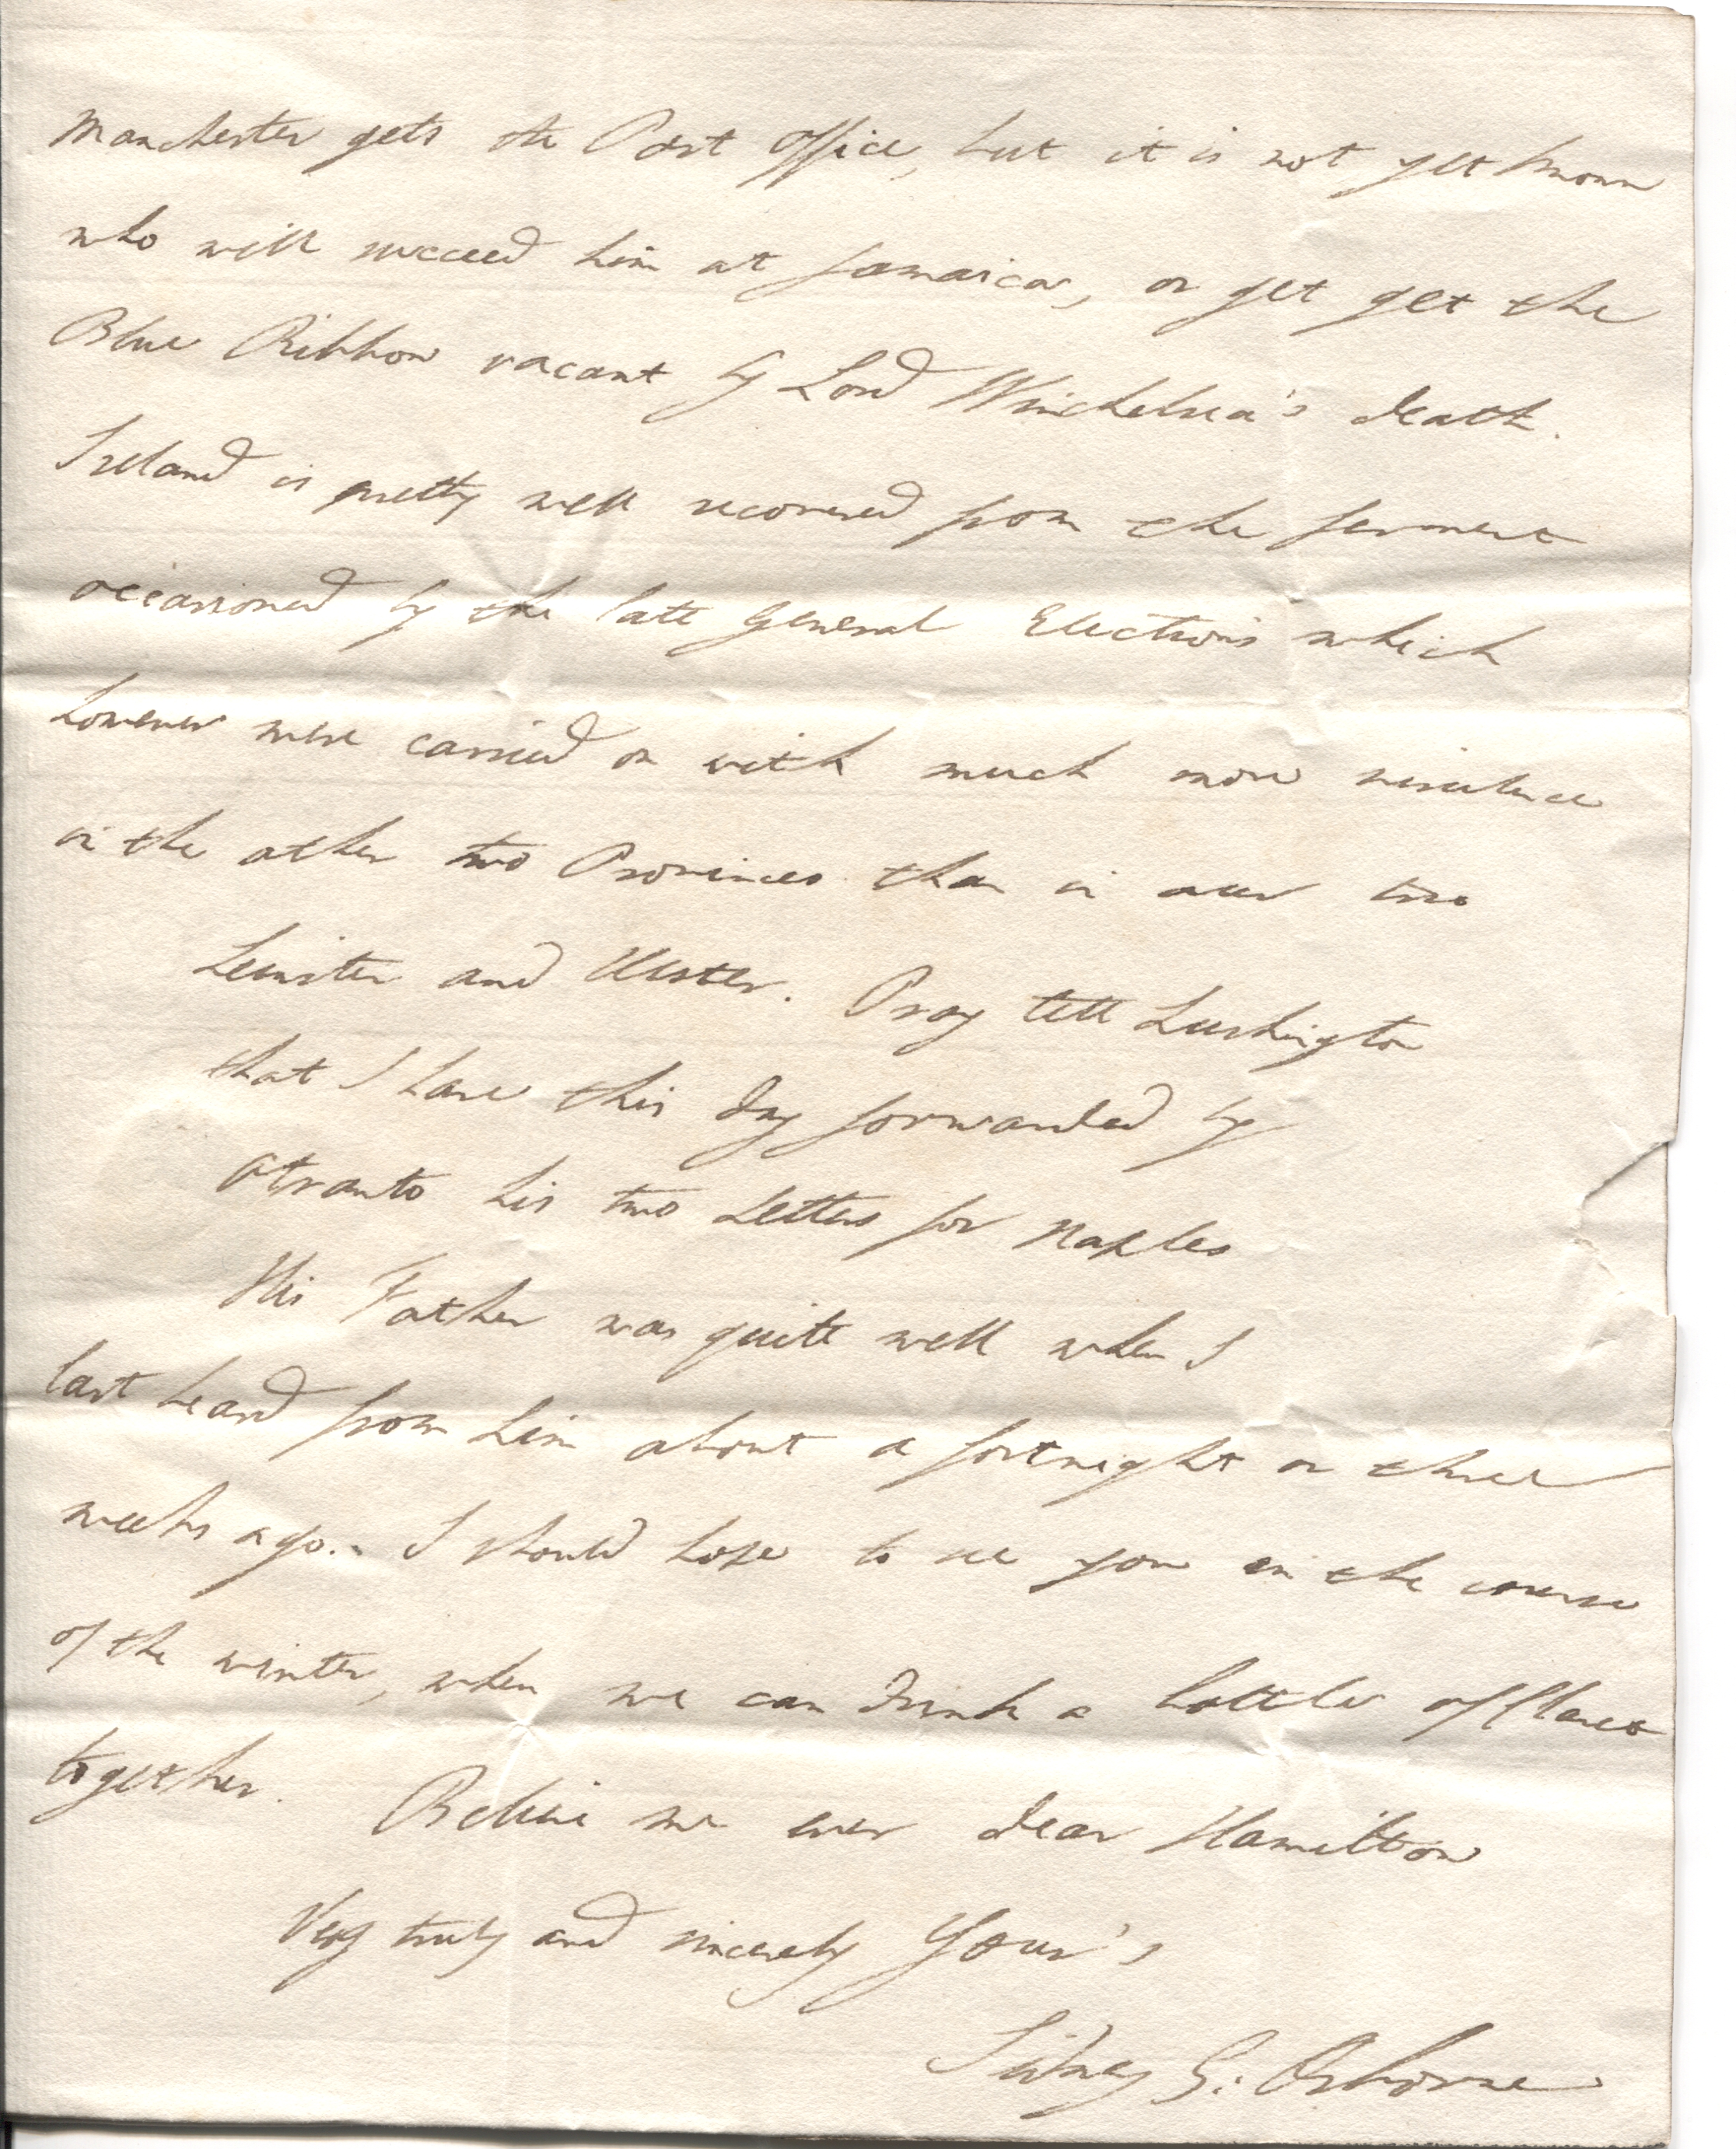 Manchester gets the Post Office, but it is not yet known
who will succeed him at Jamaica, or get get the
Blue Ribbon vacant by Lord Winchelsea's death.
Ireland is pretty well recovered from the ferment
occasioned by the late General Elections which
however were carried on with much more virulence
in the other two Provinces than in our two
Leinster and Ulster. Pray tell Lushington
that I have this day forwarded by
Otranto his two Letters for Naples
His Father was quite well when I
last heard from him about a fortnight or three
weeks ago.- I should hope to see you in the course
of the winter, when we can drink a bottle of Claret
together. Believe me ever dear Hamilton
Very truly and sincerely Your's
Sidney G: Osborne